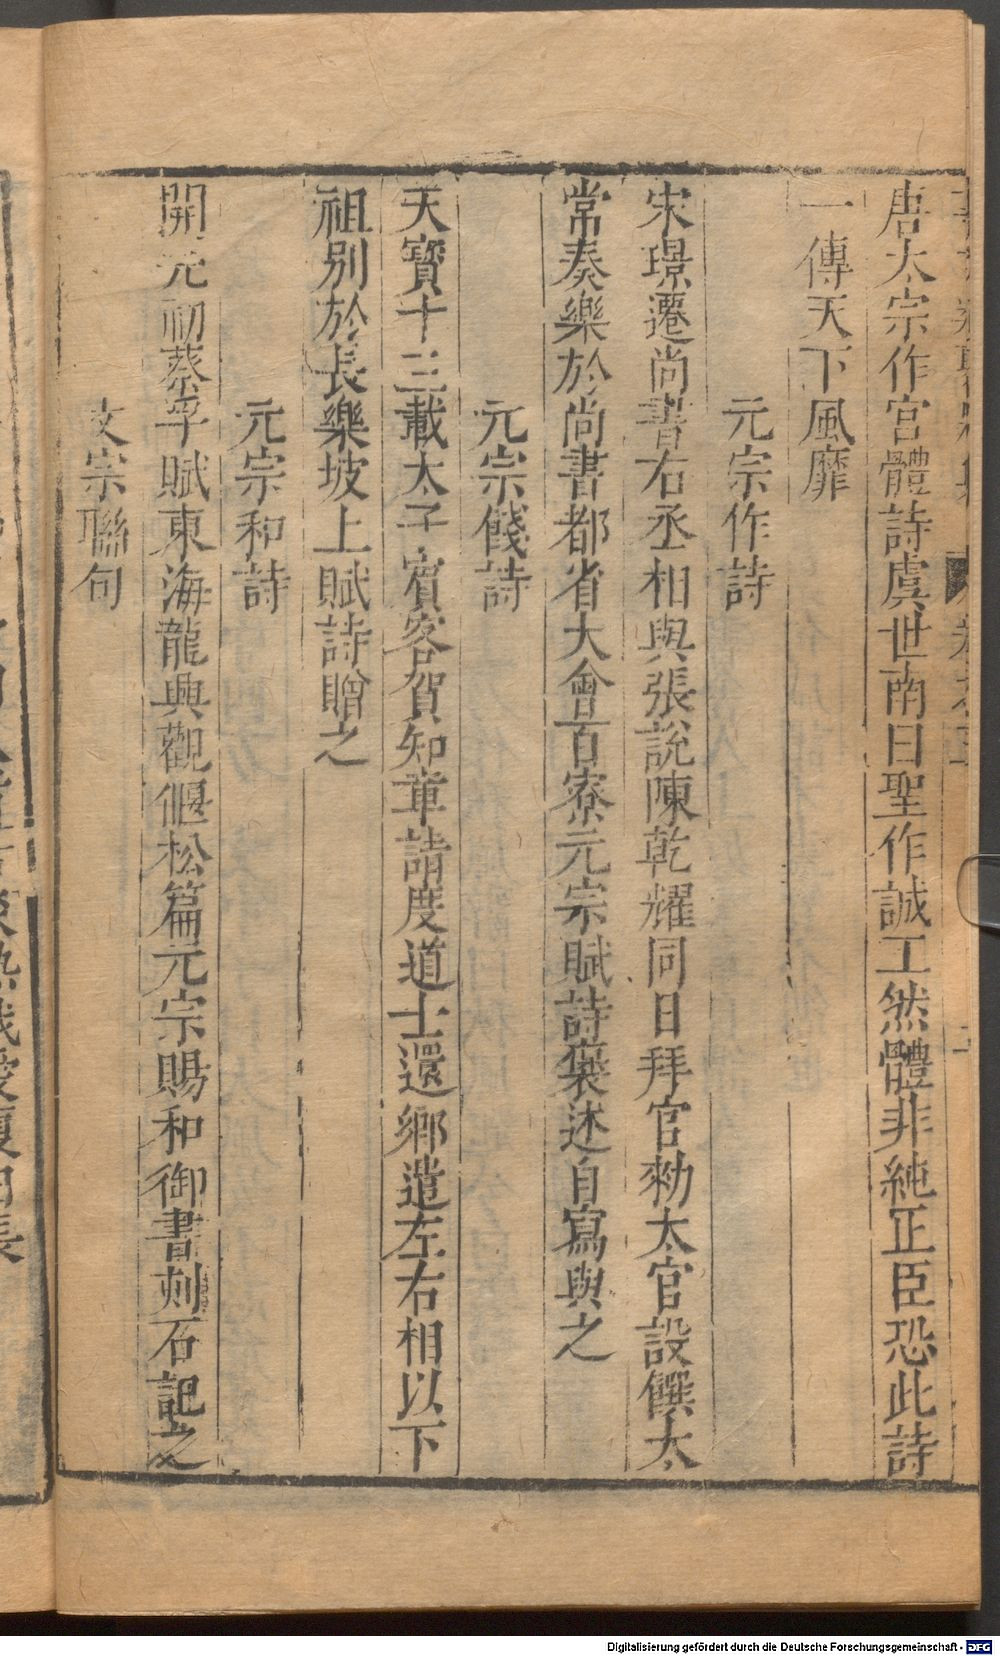 唐太宗作宮體詩虞世南曰聖作誠工然體非純正臣恐此詩
一傳天下風靡
元宗作詩
宋璟遷尚書右丞相與張說陳乾耀同日拜官勑太官設饌太
常奏樂於尚書都省大會百寮元宗賦詩襃述自寫與之
元宗餞詩
天寶十三載太子賓客賀知章請度道士還鄉遣左右相以下
祖別於長樂坡上賦詩贈之
元宗和詩
開元初蔡孚賦東海龍興觀偃松篇元宗賜和御書刻石記之
文宗聯句
Digitalisierung gefördert durch die Deutsche Forschungsgemeinschaft - DFG